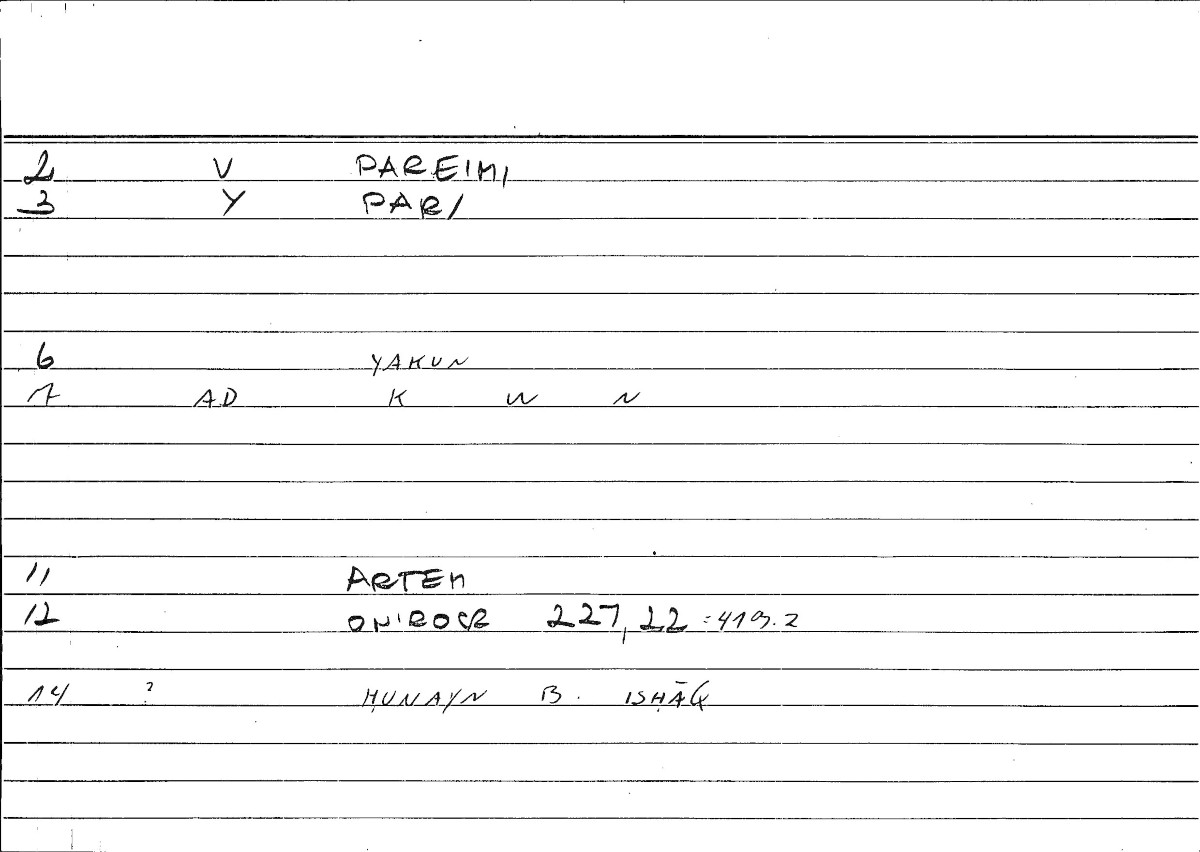 2 V PAREIMI
3 Y PARI
6 YAKUN
7 AD K W N
11 ARTEM
12 ONIROCR 227,22 :419.2
14 ? ḤUNAYN B. ISḤĀQ